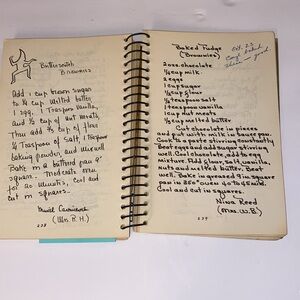 Butterscotch
Brownies
Add 1 cup brown sugar
to ¼ cup melted butter,
1 egg, 1 teaspoon vanilla,
and ½ cup of nut meats.
Then add ½ cup of flour
¼ teaspoon of salt, 1 teaspoon
baking powder, and mix well.
Bake in a buttered pan 9"
square. Moderate oven
for 20 minutes, Cool and
cut in squares.
(Mrs. R. H.)
238
"Baked Fudge"
(Brownies)
2 ozs. chocolate
¼ cup milk
2 eggs
1 cup sugar
½ cup flour
¼ teaspoon salt
1 teaspoon vanilla
1 cup nut meats
½ cup melted butter
Cut chocolate in pieces
and put with milk in sauce pan.
Cook to a paste stirring constantly.
Beat eggs and add sugar stirring
well. Cool chocolate, add to egg
mixture. Add flour, salt, vanilla,
nuts and melted butter. Beat
well. Bake in greased 9 in square
pan in 350° oven 40 to 45 min.
Cool and cut in squares.
Nina Reed
(Mrs. W. B.)
239
Oct. 23
good